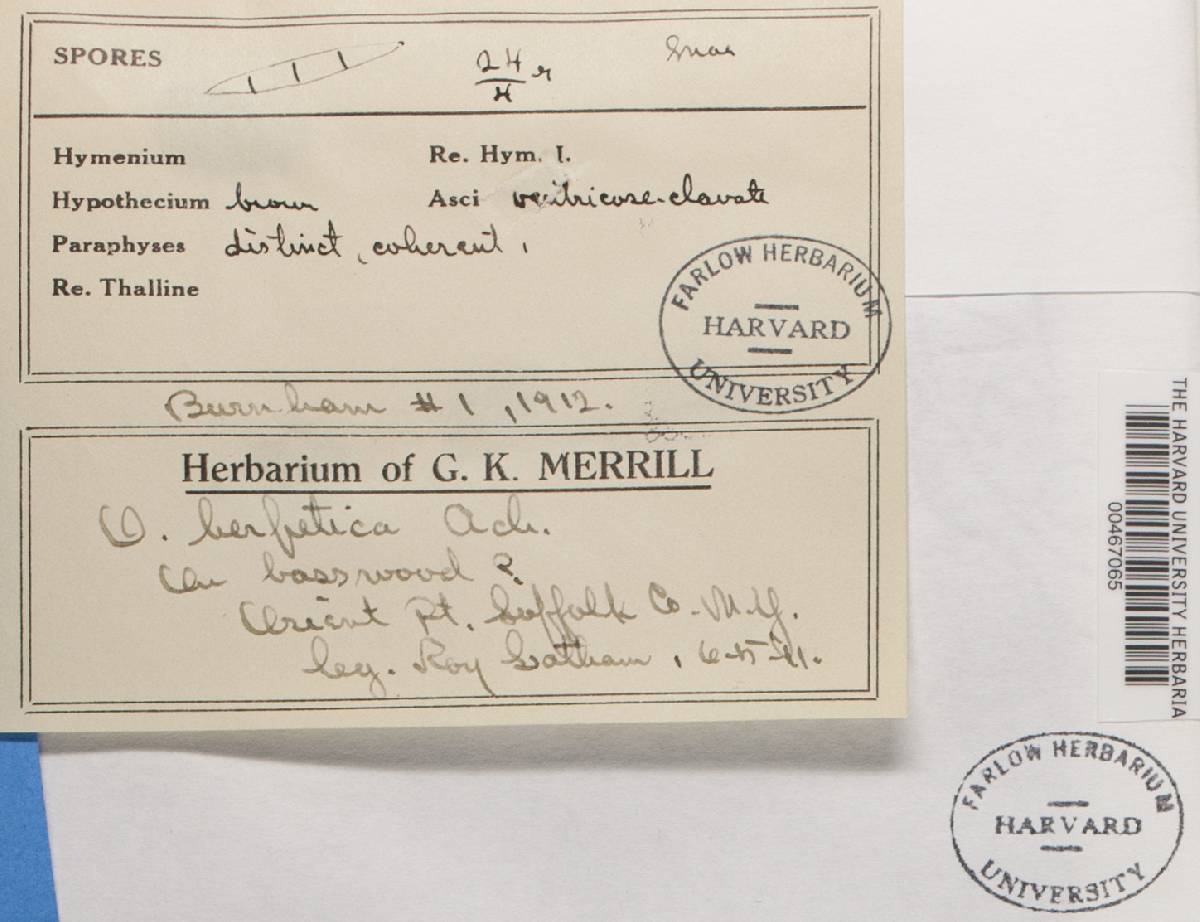 SPORES 24/4
Hymenium Re. Hym. I.
Hypothecium brown Asci ventricose-clavate
Paraphyses distinct, coherent,
Re. Thalline
FARLOW HERBARIUM
HARVARD
UNIVERSITY
Burnham #1, 1912.
Herbarium of G. K. MERRILL
O. herpetica Ach.
On basswood?
Orient Pt. Suffolk Co. N.Y.
leg. Roy Latham,
THE HARVARD UNIVERSITY HERBARIA
00467065
FARLOW HERBARIUM
HARVARD
UNIVERSITY